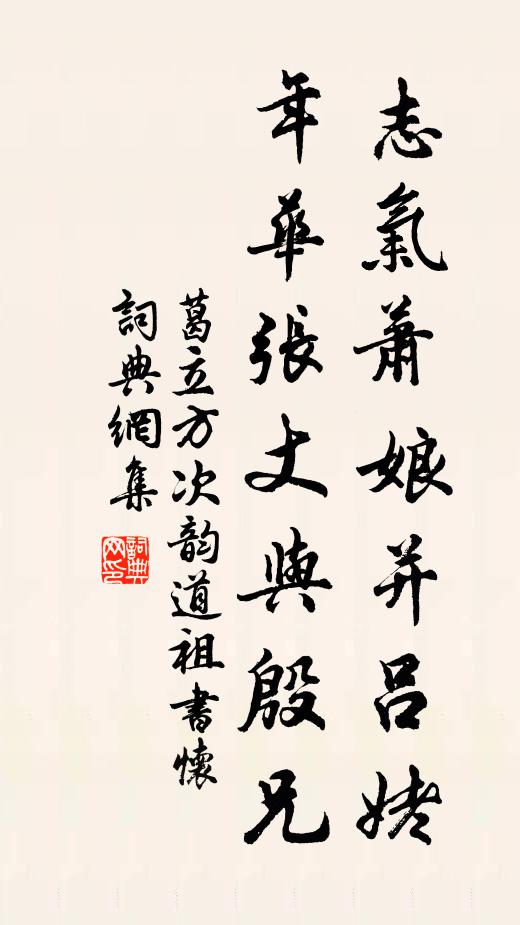 志氣蕭娘并呂姥
年華張丈與殷兄
葛立方次韵道祖書懷
詞典網集
詞典网印